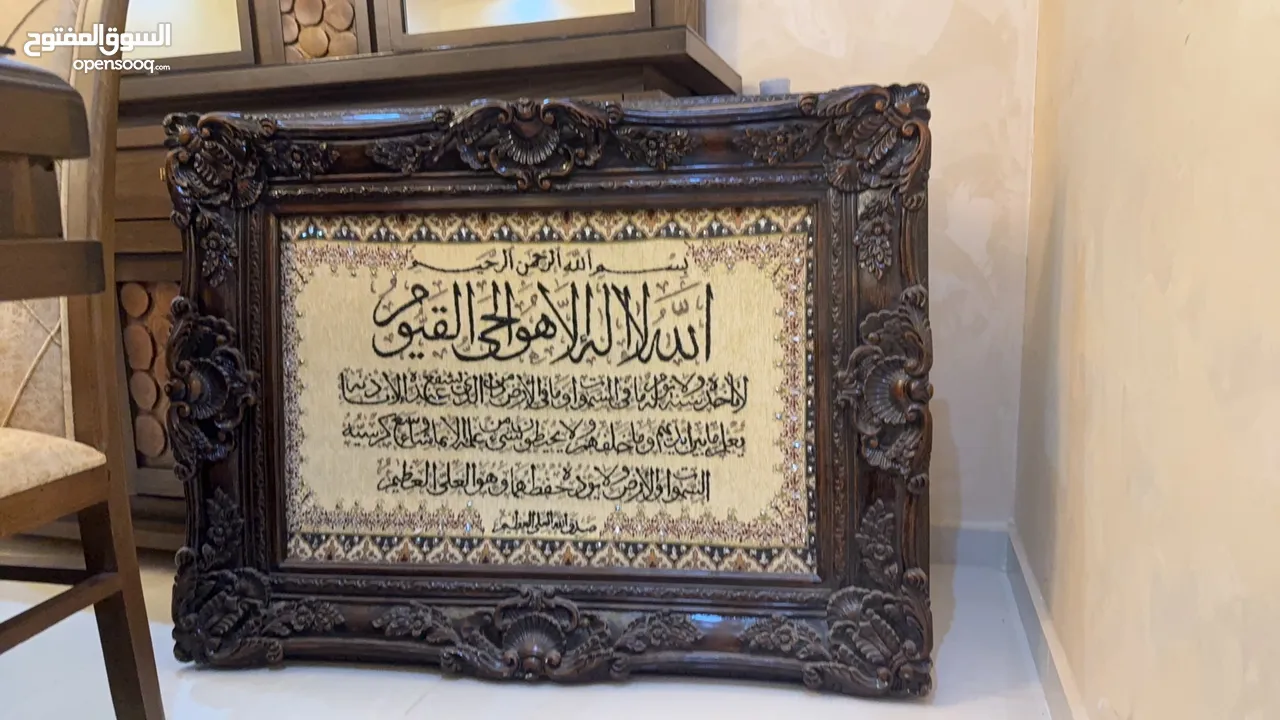 السوق المفتوح
opensooq.com
بسم الله الرحمن الرحيم
الله لا إله إلا هو الحي القيوم
لا تأخذه سنة ولا نوم له ما في السموات وما في الأرض من ذا الذي يشفع عنده إلا بإذنه
يعلم ما بين أيديهم وما خلفهم ولا يحيطون بشيء من علمه إلا بما شاء وسع كرسيه
السموات والأرض ولا يؤده حفظهما وهو العلي العظيم
صدق الله العلي العظيم